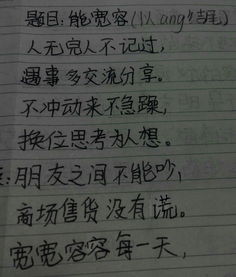 题目:能宽容(以ang结尾)
人无完人不记过,
遇事多交流分享。
不冲动来不急躁,
换位思考为人想。
:朋友之间不能吵,
商场售货没有谎。
宽宽容容每一天,